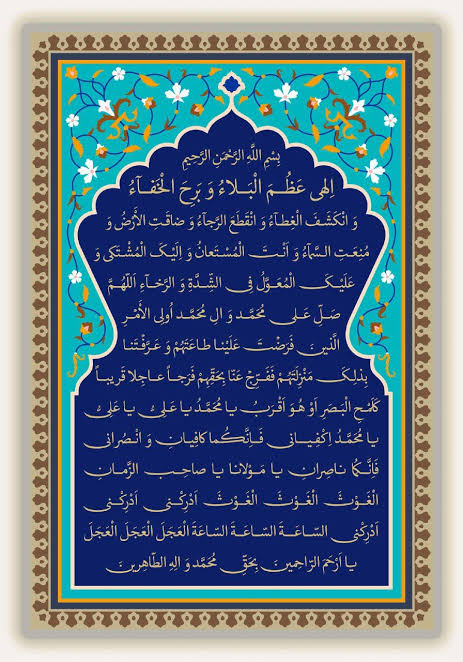 بِسْمِ اللَّهِ الرَّحْمٰنِ الرَّحيمِ
اِلٰهى عَظُمَ الْبَلاۤءُ وَ بَرِحَ الْخَفاۤءُ
وَ انْكَشَفَ الْغِطاۤءُ وَ انْقَطَعَ الرَّجاۤءُ وَ ضاقَتِ الْاَرْضُ وَ
مُنِعَتِ السَّماۤءُ وَ اَنْتَ الْمُسْتَعانُ وَ اِلَيْكَ الْمُشْتَكى وَ
عَلَيْكَ الْمُعَوَّلُ فِى الشِّدَّةِ وَ الرَّخاۤءِ اَللّٰهُمَّ
صَلِّ عَلى مُحَمَّدٍ وَ الِ مُحَمَّدٍ اُولِى الْاَمْرِ
الَّذينَ فَرَضْتَ عَلَيْنا طاعَتَهُمْ وَ عَرَّفْتَنا
بِذلِكَ مَنْزِلَتَهُمْ فَفَرِّجْ عَنّا بِحَقِّهِمْ فَرَجاً عاجِلاً قَريباً
كَلَمْحِ الْبَصَرِ اَوْ هُوَ اَقْرَبُ يا مُحَمَّدُ يا عَلِىُّ يا عَلِىُّ
يا مُحَمَّدُ اِكْفِيانى فَاِنَّكُما كافِيانِ وَ انْصُرانى
فَاِنَّكُما ناصِرانِ يا مَوْلانا يا صاحِبَ الزَّمانِ
الْغَوْثَ الْغَوْثَ الْغَوْثَ اَدْرِكْنى اَدْرِكْنى
اَدْرِكْنى السّاعَةَ السّاعَةَ السّاعَةَ الْعَجَلَ الْعَجَلَ الْعَجَلَ
يا اَرْحَمَ الرّاحِمينَ بِحَقِّ مُحَمَّدٍ وَ الِهِ الطّاهِرينَ